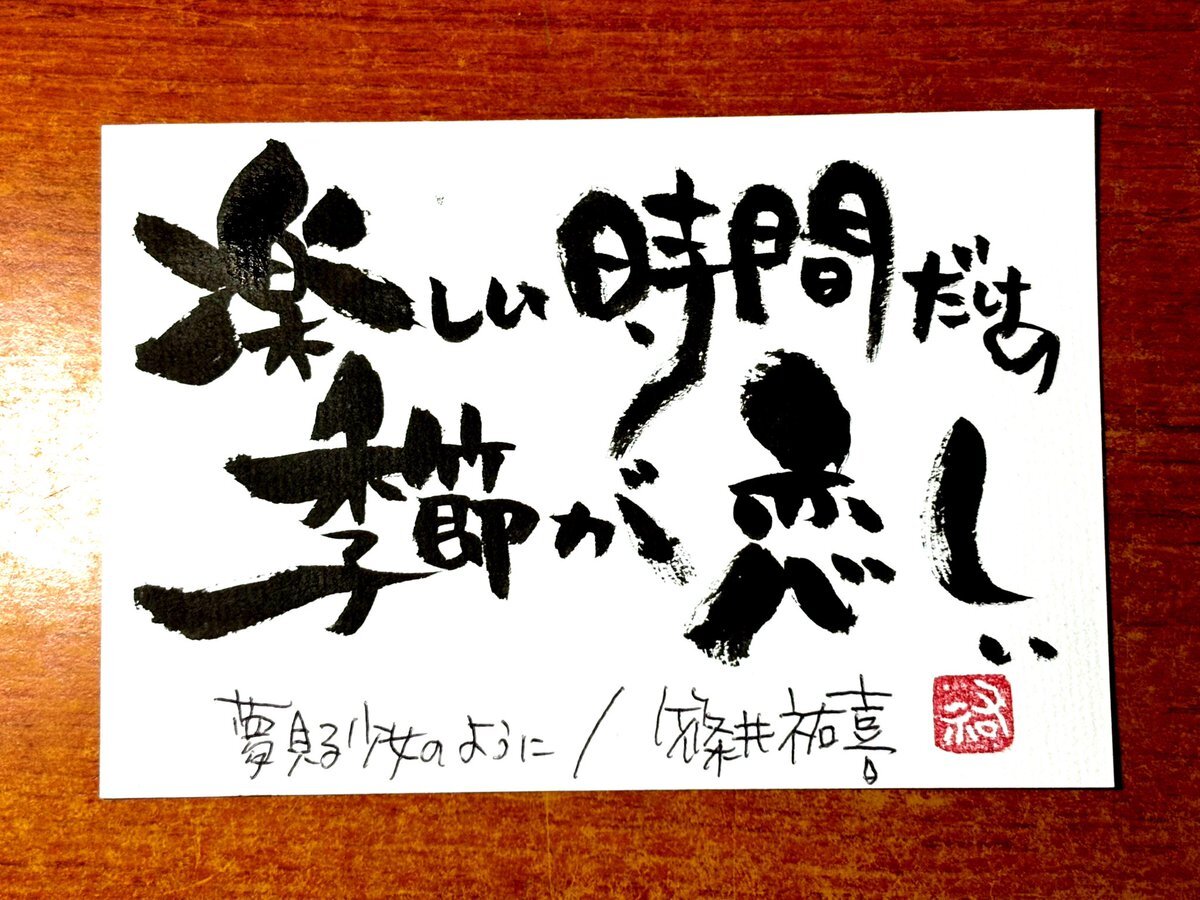 楽しい時間だけの
季節が恋しい
夢見る少女のように / 篠井祐喜
祐